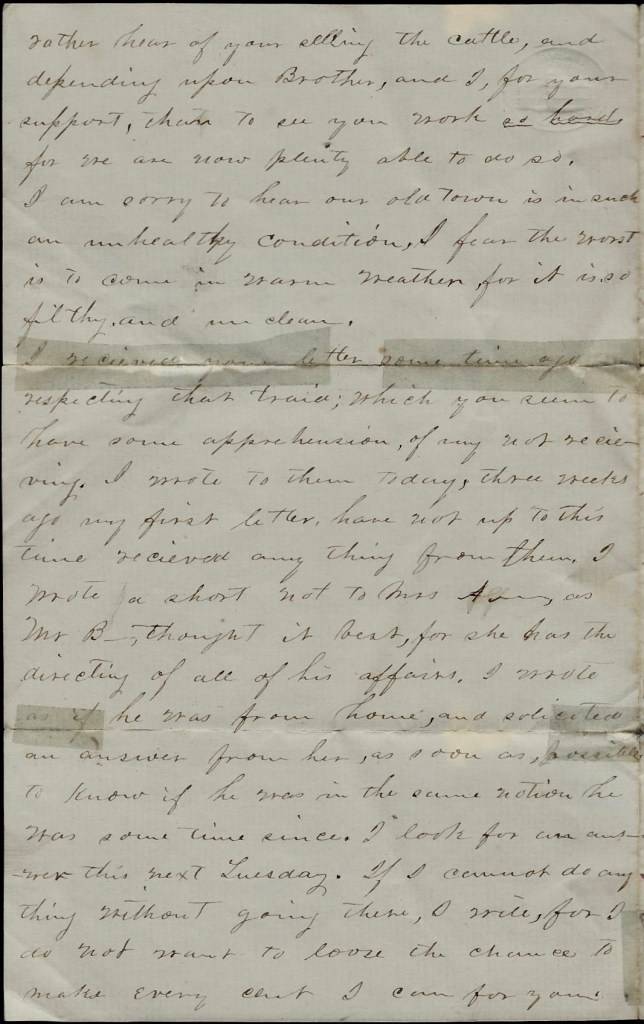 rather hear of your selling the cattle, and
depending upon Brother, and I, for your
support, than to see you work so hard
for we are now plenty able to do so.
I am sorry to hear our old town is in such
an unhealthy condition, I fear the worst
is to come in warm weather, for it is so
filthy, and unclean.
I recieved your letter some time ago
respecting that traid; which you seem to
have some apprehension, of my not recie-
ving. I wrote to them today, three weeks
ago my first letter, have not up to this
time recieved any thing from them. I
wrote a short not to Mrs as
Mr B—, thought it best, for she has the
directing of all of his affairs. I wrote
as if he was from home, and solicited
an answer from her, as soon as, possible
to know if he was in the same notion he
was some time since. I look for an ans-
-wer this next Tuesday. If I cannot do any
thing without going there, I write, for I
do not want to loose the chance to
make every cent I can for you.